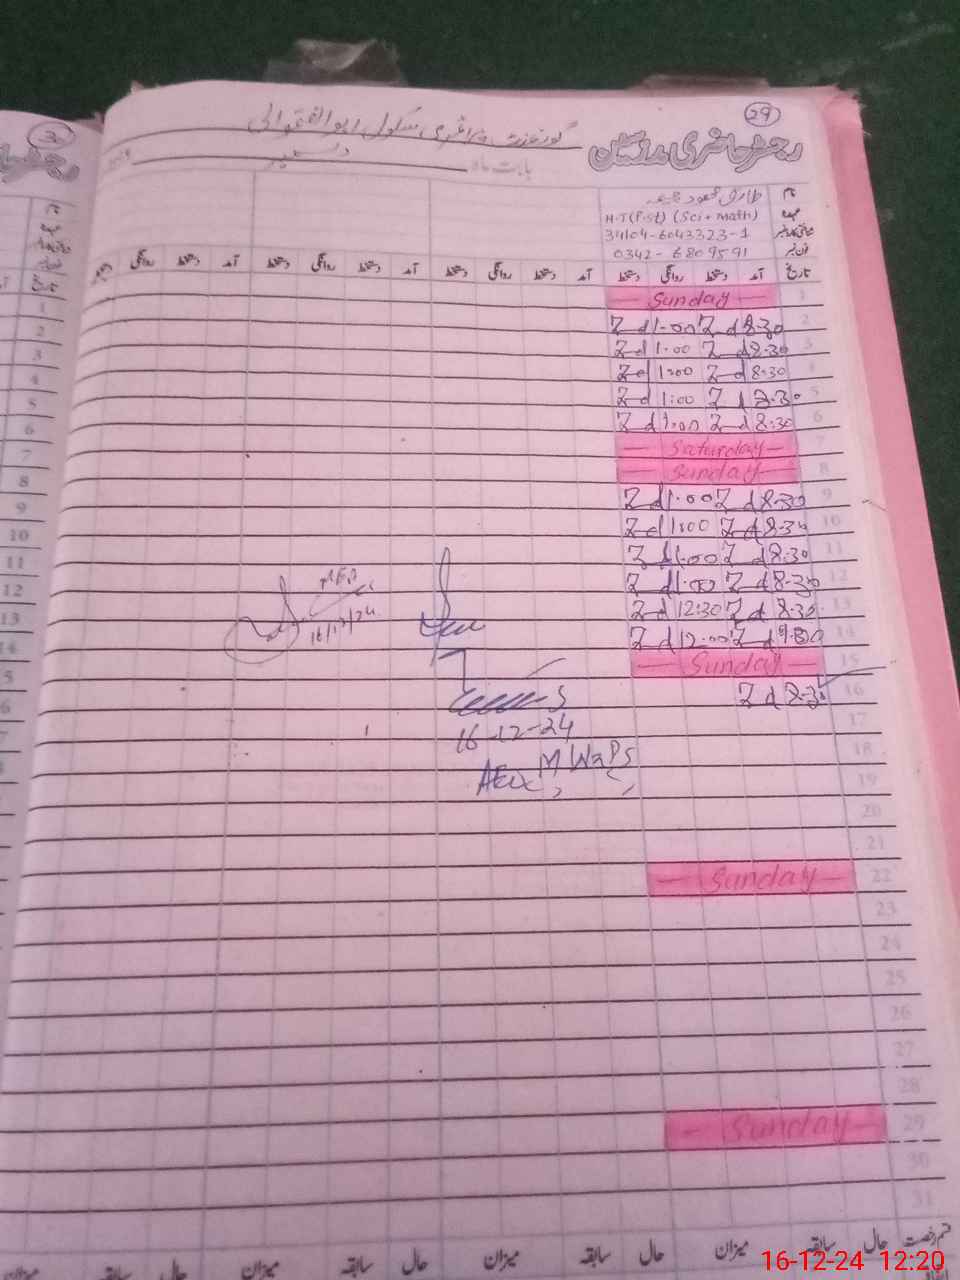 29
رجسٹر حاضری مدرسین
گورنمنٹ پرائمری سکول ابوالفتح والی
بابت ماہ دسمبر
نام طارق محمود چیمہ
عہدہ H-T(P.st) (Sci + math)
34104-6043323-1
فون نمبر 0342-6809591
تاریخ آمد دستخط روانگی دستخط آمد دستخط روانگی دستخط آمد دستخط روانگی دستخط آمد
1 — Sunday —
2 8:30 1:00
3 8:30 1:00
4 8:30 1:00
5 8:30 1:00
6 8:30 1:00
7 — Saturday —
8 — Sunday —
9 8:30 1:00
10 8:30 1:00
11 8:30 1:00
12 8:30 1:00
13 8:30 12:30
14 12:00
15 — Sunday —
16 8:30
17
18
19
20
21
22 — Sunday —
23
24
25
26
27
28
29 — Sunday —
30
31
16/12/24
16-12-24
قسم رخصت حال سابقہ میزان حال سابقہ میزان حال سابقہ میزان سابقہ
30
نام
تاریخ
1
2
3
4
5
6
7
8
9
10
11
12
13
14
16-12-24 12:20